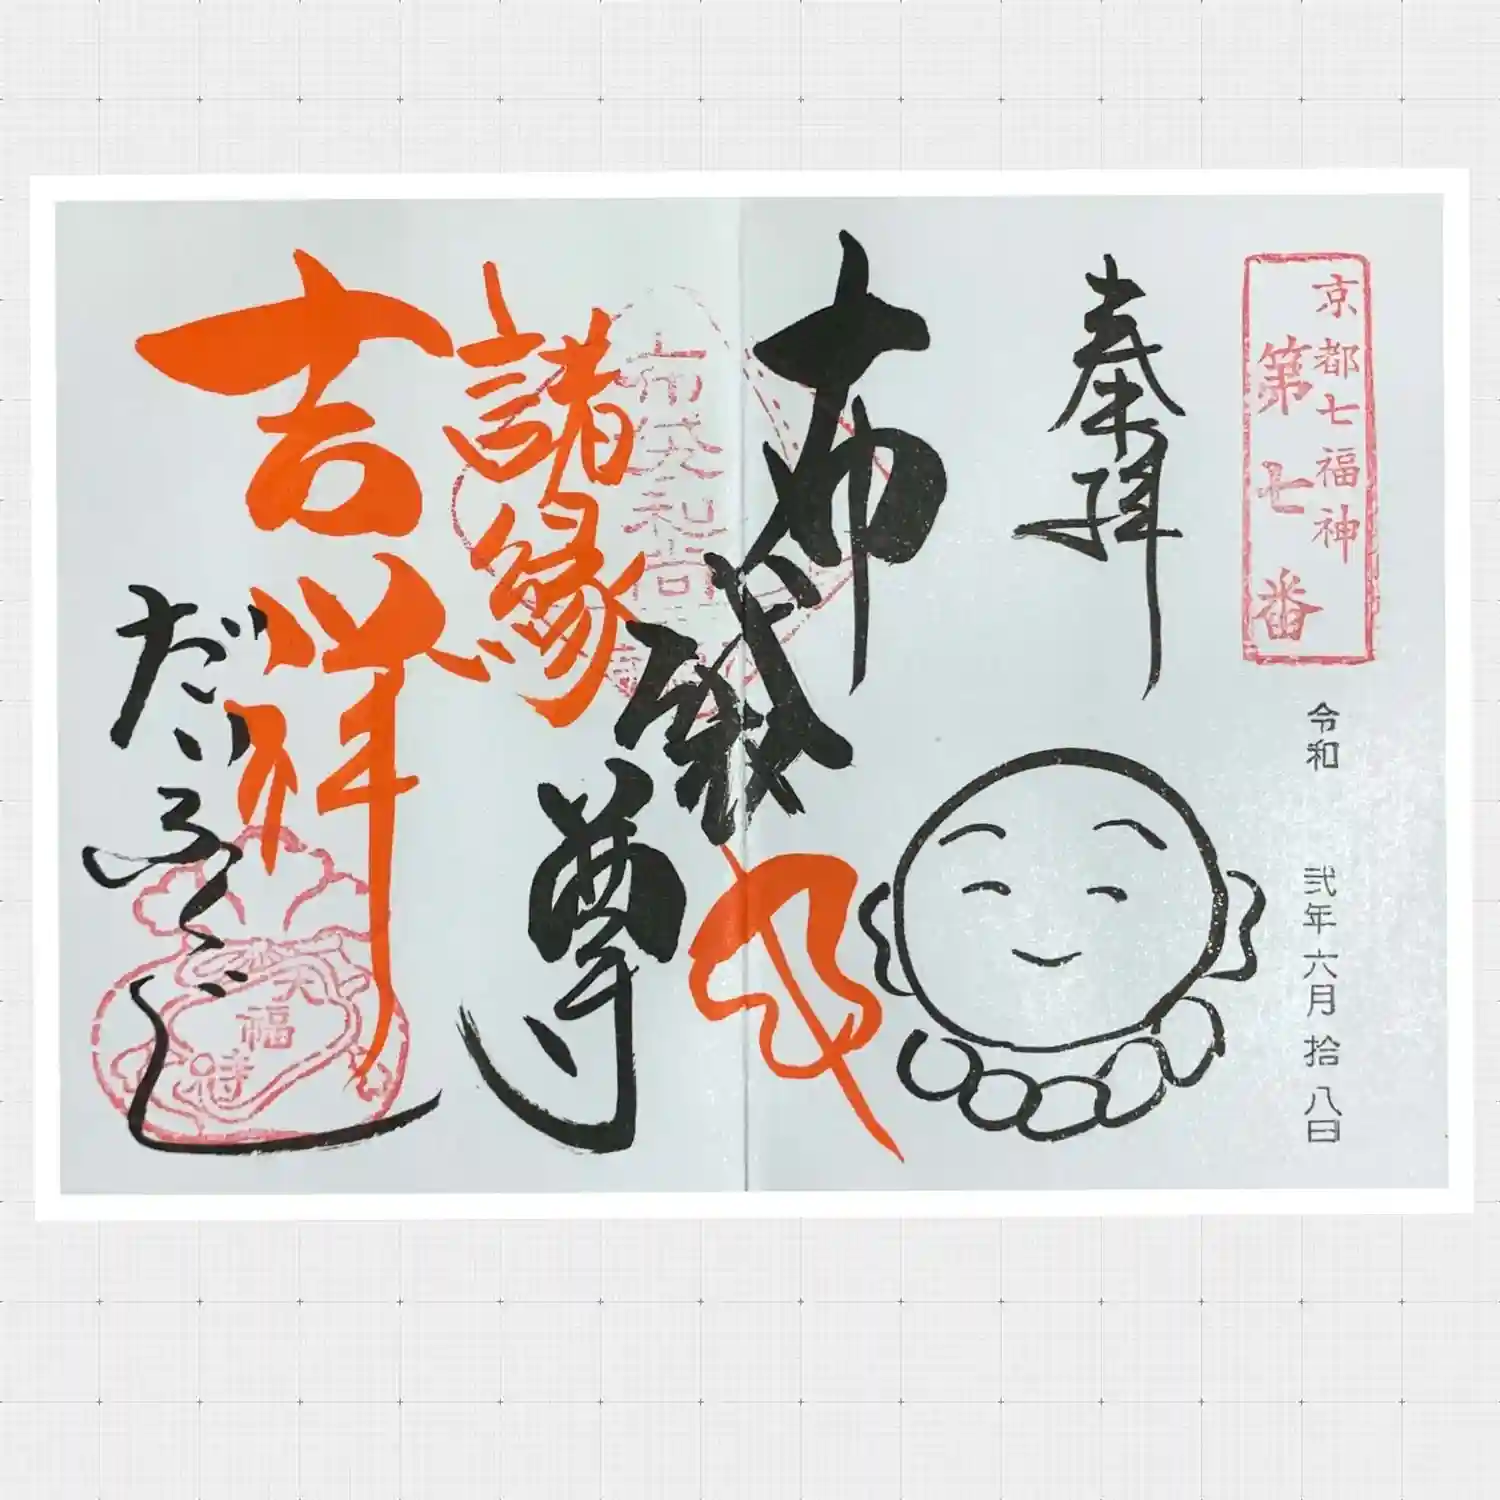 京都七福神
第七番
令和 弐年六月拾八日
奉拝
布袋尊
布袋和尚
諸縁
吉祥
だいふくじ
福